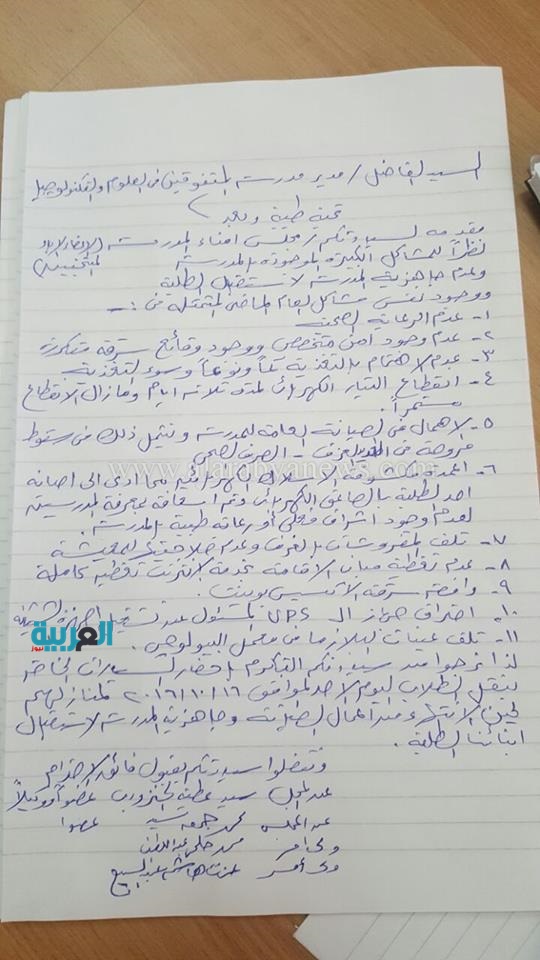 السيد الفاضل / مدير مدرسة المتفوقين فى العلوم والتكنولوجيا
تحية طيبة وبعد
مقدمه لسيادتكم / مجلس امناء المدرسة
نظراً للمشاكل الكثيرة الموجودة بالمدرسة
وعدم جاهزية المدرسة لاستقبال الطلبة
ووجود نفس مشاكل العام الماضى المتمثلة فى :-
١- عدم الرعاية الصحية
٢- عدم وجود امن متخصص ووجود وقائع سرقة متكررة
٣- عدم الاهتمام بالتغذية كماً ونوعاً وسوء التغذية
٤- انقطاع التيار الكهربائى لمدة ثلاثة ايام ومازال الانقطاع
مستمراً.
٥- الاهمال فى الصيانة العامة للمدرسة وتمثل ذلك فى سقوط
مروحة فى الغرف - الصرف الصحى
٦- اعمدة مكشوفة الاسلاك الكهربائية مما ادى الى اصابة
احد الطلبة بالصاعق الكهربائى وتم اسعافة بمعرفة المدرسين
لعدم وجود اشراف فعلى أو رعاية طبية بالمدرسة.
٧- تلف المفروشات بالغرف وعدم صلاحيتها للمعيشة
٨- عدم تغطية مبانى الاقامة بخدمة الانترنت تغطية كاملة
٩- واقعة سرقة الاكسيس بوينت.
١٠- احتراق جهاز الـ UPS المسئول عن تشغيل اجهزة
١١- تلف عينات البلازما فى معمل البيولوجى.
لذا نرجوا من سيادتكم التكرم بإحضار السيارات الخاصة
بنقل الطلاب ليوم الاحد الموافق ٢٠١٦/١٠/١٦ لمنازلهم
لحين الانتهاء من اعمال الصيانة وجاهزية المدرسة لاستقبال
ابنائنا الطلبة.
وتفضلوا سيادتكم بقبول فائق الاحترام
عن المجلس سيد عطية
عن المجلس محمد جمعه سيد عضوا
ولى أمر
ولى أمر
العربية
نيوز
www.alarabyanews.com